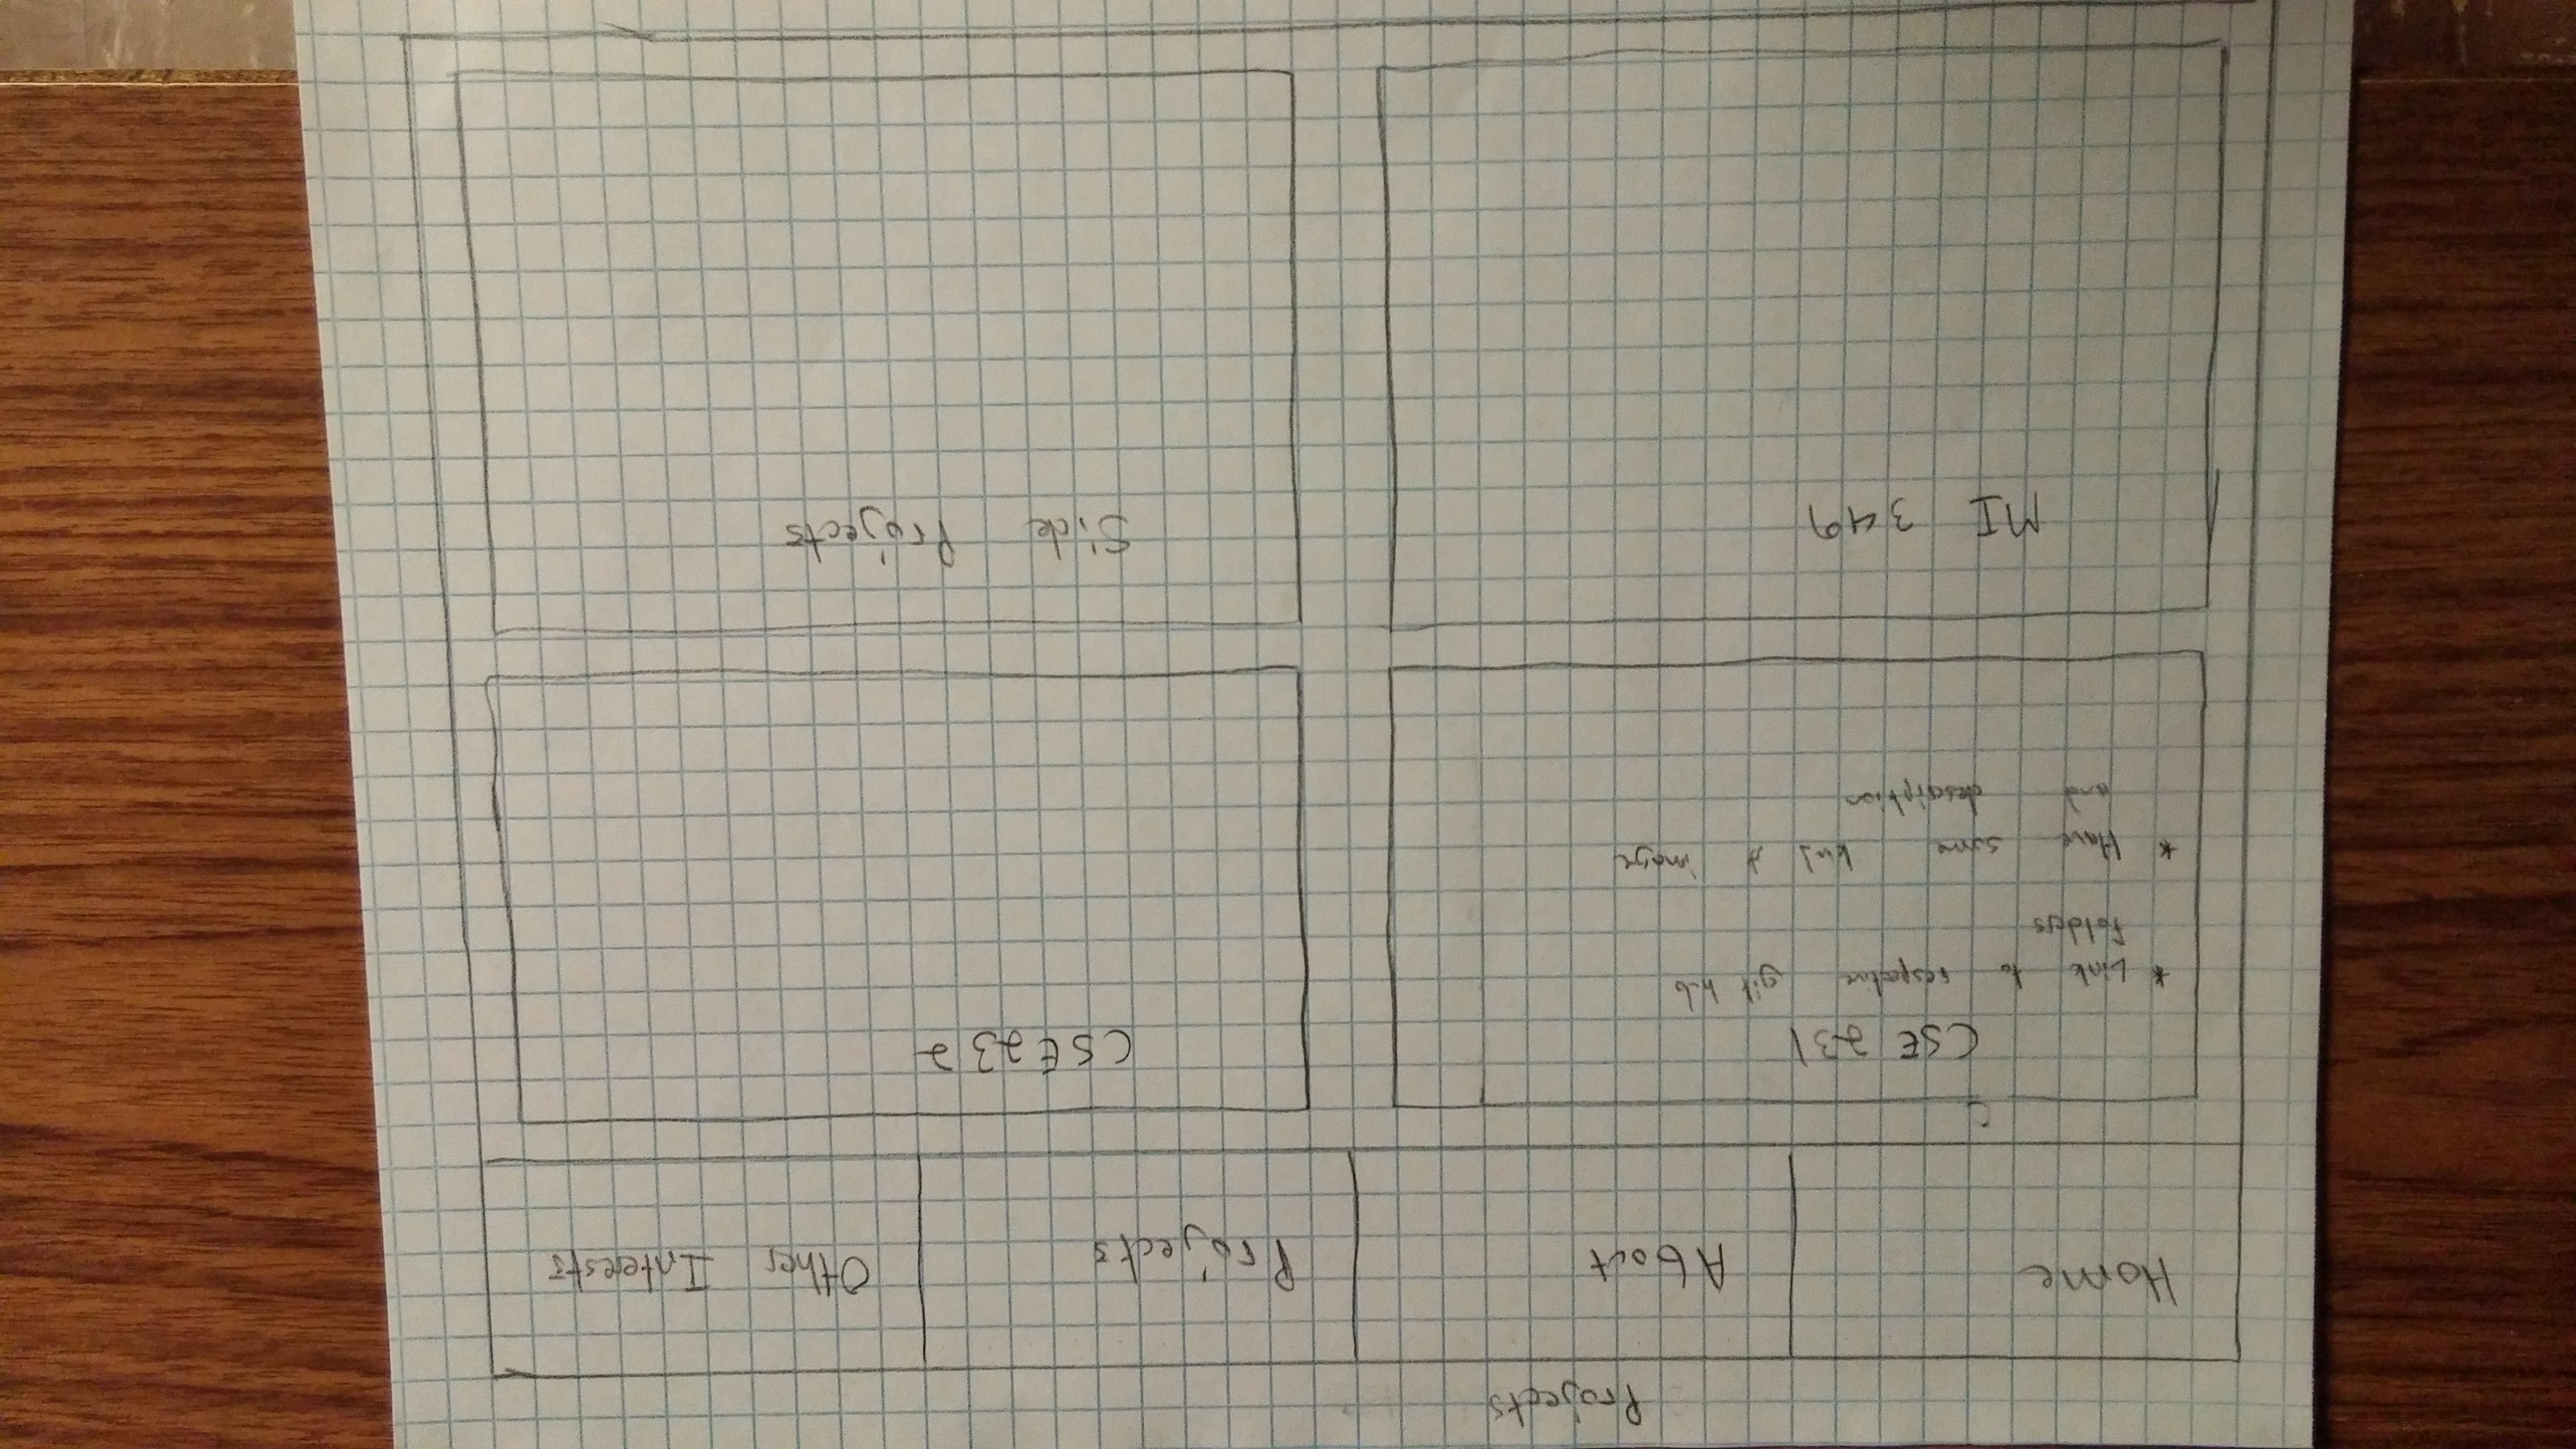 Projects
Home About Projects Other Interests
C
CSE 231
* Link to respective git hub
folders
* Have some kind of image
and description
CSE 232
MI 349
Side Projects